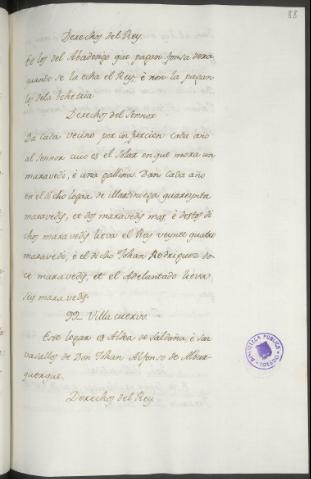 88
Derechos del Rey.
Et los del Abadengo que pagan fonsadera
quando se la echa el Rey, è non la pagan
los dela behetria
Derechos del Sennor
Da cada vecino por infurcion cada año
al Sennor cuio es el Solar en que mora un
maravedi, è una gallina. Dan cada año
en el dicho logar de martiniega quarenta
maravedis, et dos maravedis mas è destos di
chos maravedis lieva el Rey veynte quatro
maravedis, è el dicho Johan Rodriguez do-
ce maravedis, et el Adelantado lieva
seis maravedis.
92. Villa cuervo.
Este logar es Aldea de Saldaña, è son
vasallos de Don Johan Alfonso de Albur-
querque.
Derechos del Rey
BIBLIOTECA PUBLICA
TOLEDO